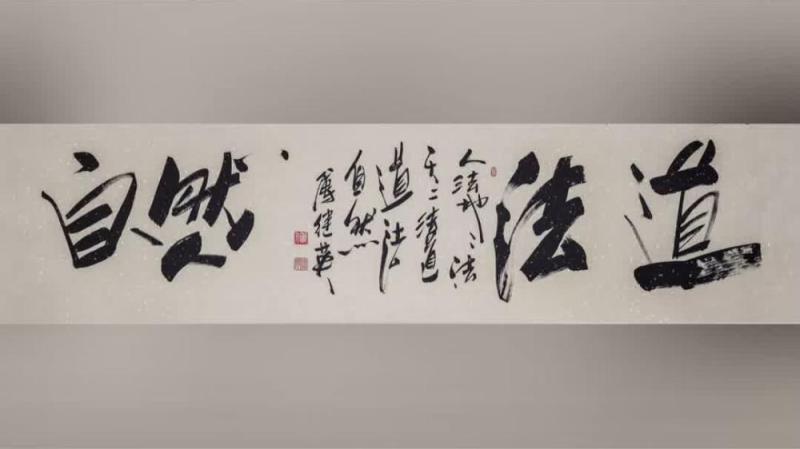 道法
自然
人法地〻法
天〻法道
道法
自然
傅继英